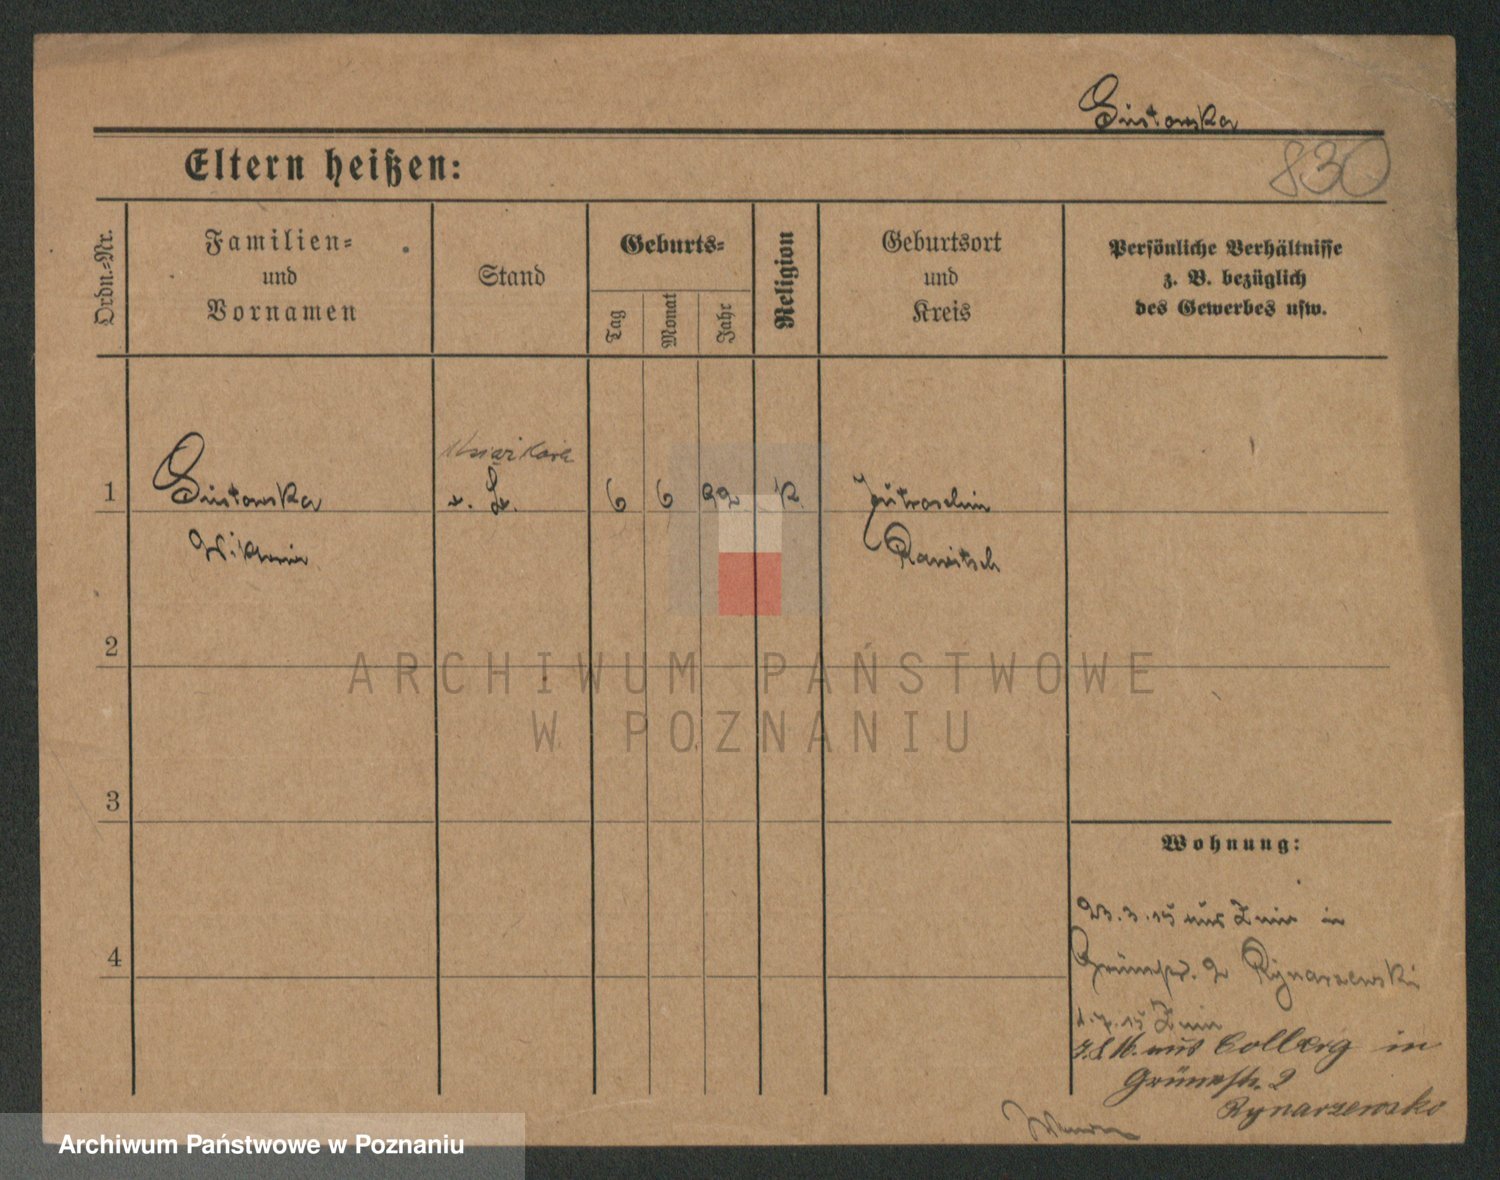 Gustowska
830
Eltern heißen:
Ordn.=Nr.
Familien=
und
Vornamen
Stand
Geburts=
Tag
Monat
Jahr
Religion
Geburtsort
und
Kreis
Persönliche Verhältnisse
z. B. bezüglich
des Gewerbes usw.
1
Gustowska
6
6
92
K
Jutroschin
Rawitsch
2
3
4
Wohnung:
23.3.15 aus Znin in
Grünestr. 2 Rynarzewski
1.7.15 Znin
aus Colberg in
Grünestr. 2
Rynarzewska
ARCHIWUM PAŃSTWOWE
W POZNANIU
Archiwum Państwowe w Poznaniu